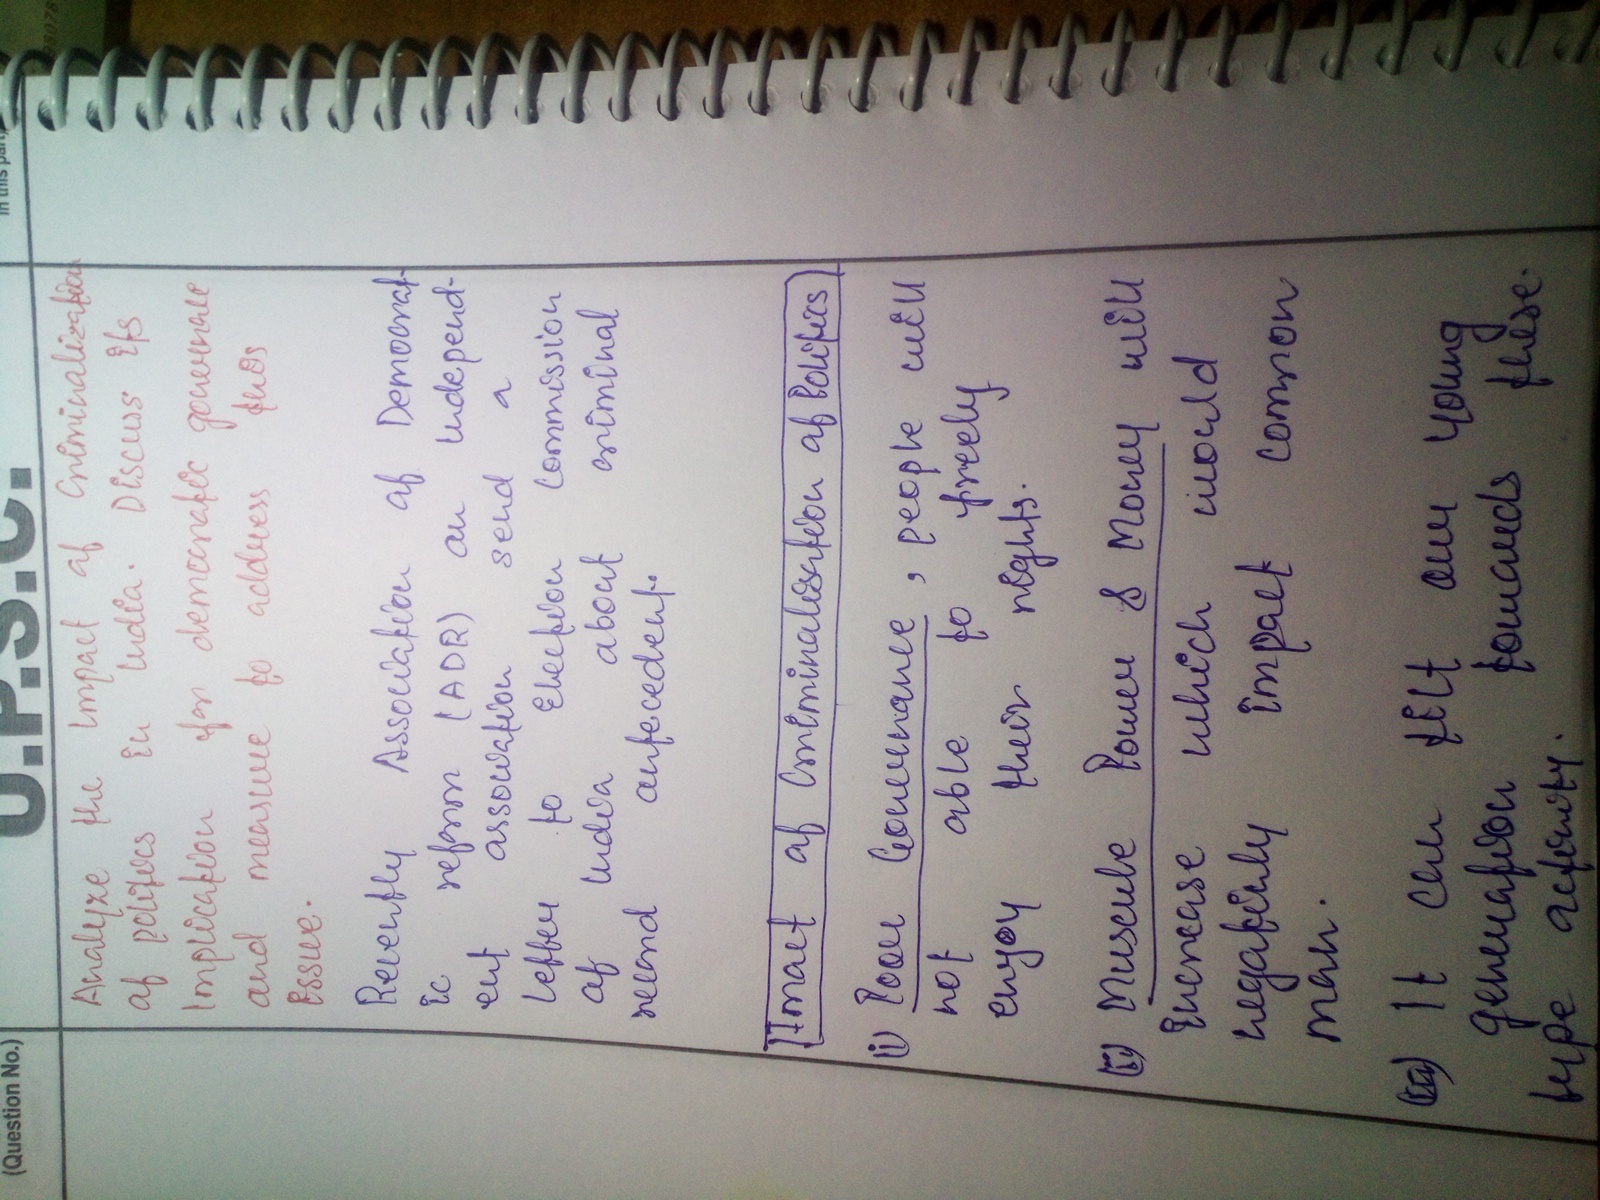 U.P.S.C.
(Question No.)
in this part
Analyze the impact of criminalization
of politics in India. Discuss its
Implication for democratic governance
and measure to address this
issue.
Recently Association of Democrat-
ic reform (ADR) an independ-
ent association send a
letter to Election Commission
of India about criminal
record antecedent.
Impact of Criminalisation of Politics
(i) Poor Governance, people will
not able to freely
enjoy their rights.
(ii) Muscule Power & Money will
increase which would
negatively impact common
man.
(iii) It can tilt our young
generation towards these
type activity.